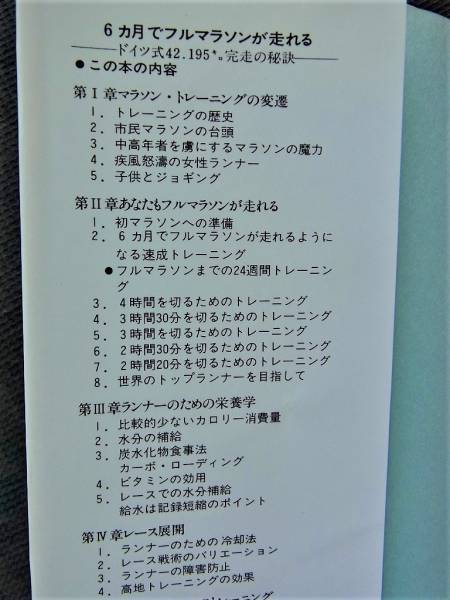 6カ月でフルマラソンが走れる
―ドイツ式42.195㌔完走の秘訣―
●この本の内容
第Ⅰ章マラソン・トレーニングの変遷
1. トレーニングの歴史
2. 市民マラソンの台頭
3. 中高年者を虜にするマラソンの魔力
4. 疾風怒濤の女性ランナー
5. 子供とジョギング
第Ⅱ章あなたもフルマラソンが走れる
1. 初マラソンへの準備
2. 6カ月でフルマラソンが走れるように
なる速成トレーニング
●フルマラソンまでの24週間トレーニン
グ
3. 4時間を切るためのトレーニング
4. 3時間30分を切るためのトレーニング
5. 3時間を切るためのトレーニング
6. 2時間30分を切るためのトレーニング
7. 2時間20分を切るためのトレーニング
8. 世界のトップランナーを目指して
第Ⅲ章ランナーのための栄養学
1. 比較的少ないカロリー消費量
2. 水分の補給
3. 炭水化物食事法
カーボ・ローディング
4. ビタミンの効用
5. レースでの水分補給
給水は記録短縮のポイント
第Ⅳ章レース展開
1. ランナーのための冷却法
2. レース戦術のバリエーション
3. ランナーの障害防止
4. 高地トレーニングの効果